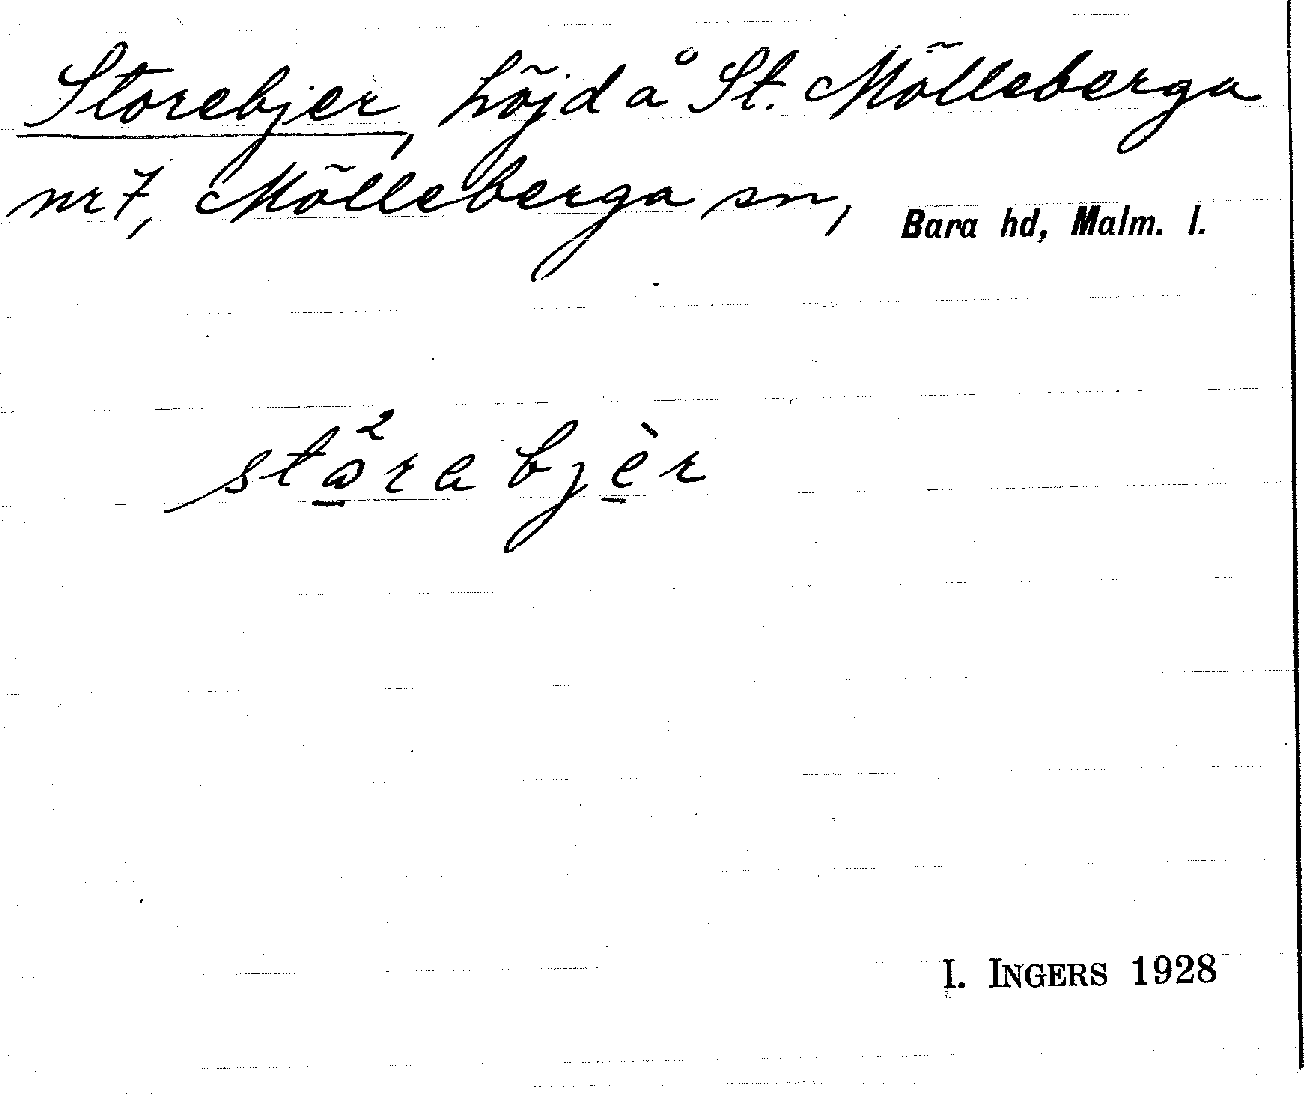 Storebjer, höjd å St. Mölleberga
nr 7, Mölleberga sn, Bara hd, Malm. l.
stå²rabjèr
I. INGERS 1928